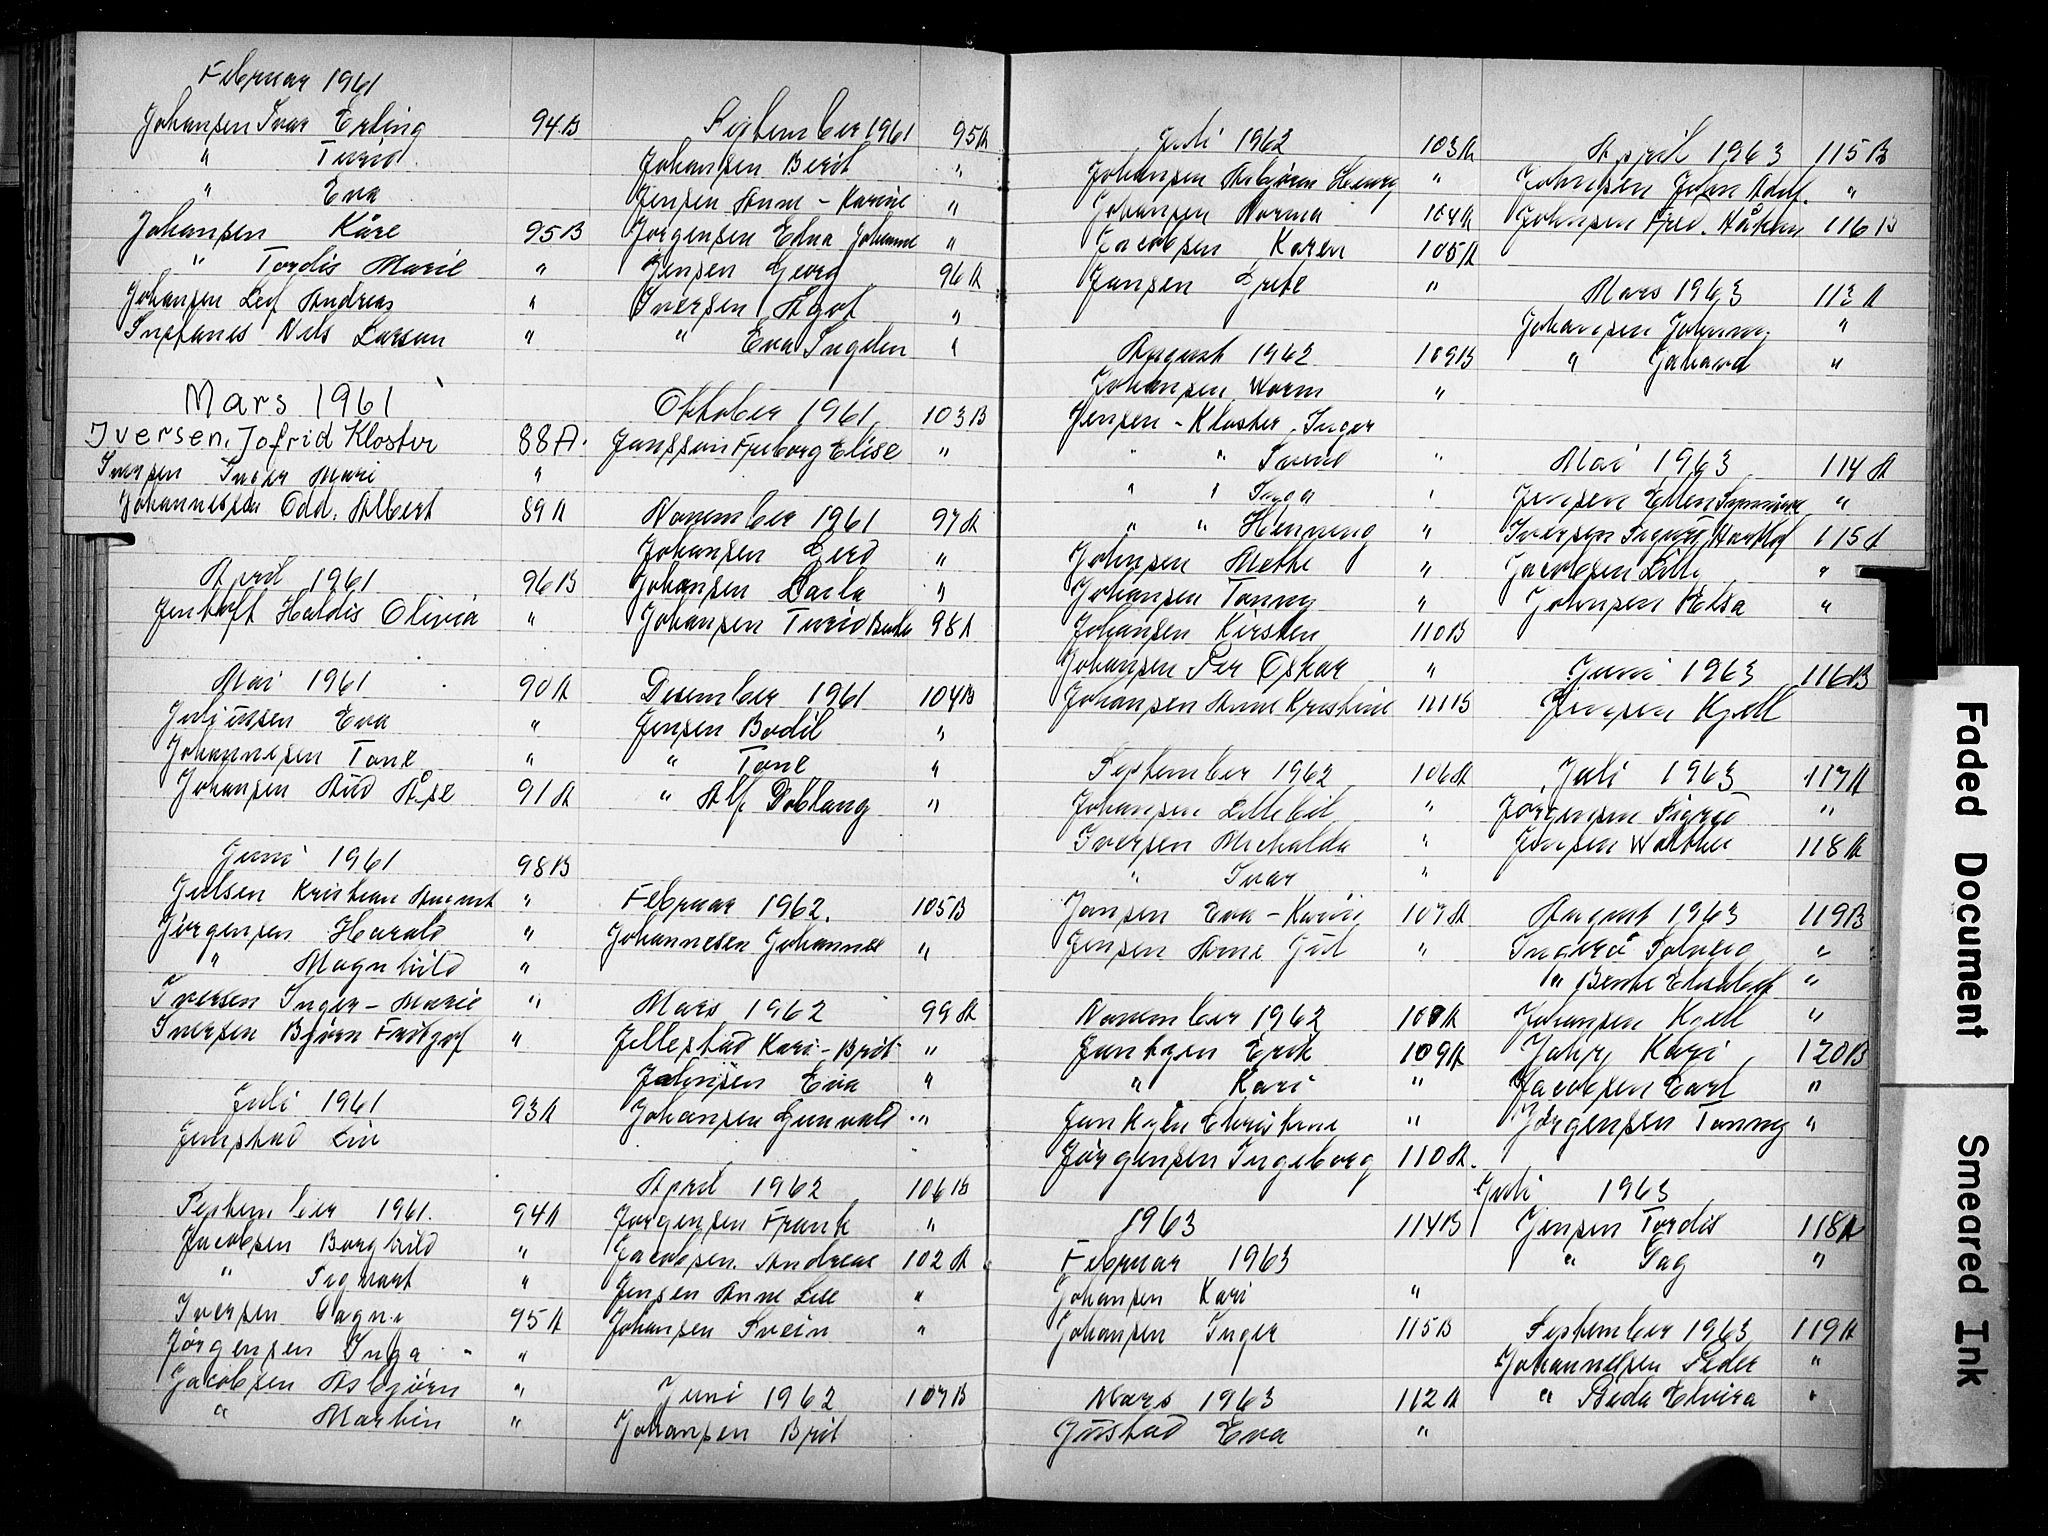 Februar 1961
Johansen Ivar Erling 94B
" Turid
" Eva
Johansen Kåre 95B
" Tordis Marie "
Johansen Leif Andreas "
Nils Larsen "
Mars 1961
Iversen, Jofrid Kloster 88A.
Iversen Inger Mari "
Johannessen Odd. Albert 89A
April 1961 96B
Jentoft Haldis Olivia "
Mai 1961 90A
Juliussen Eva "
Johannesen Tone "
Johansen Aud Åse 91A
Juni 1961 98B
Julsen Kristian August "
Jørgensen Harald "
" Magnhild "
Iversen Inger-Marie "
Iversen Bjørn Fridtjof "
Juli 1961 93A
Jenstad Liv
September 1961. 94A
Jacobsen Borghild "
" Sigmart "
Iversen Dagny 95A
Jørgensen Inga "
Jacobsen Asbjørn "
" Martin "
September 1961 95A
Johansen Berit "
Jensen Anne-Karine "
Jørgensen Edna Johanne "
Jensen Georg 96A
Iversen Ågot "
" Eva Ingelen "
Oktober 1961 103B
Jansson Freborg Elise "
November 1961 97A
Johansen Gerd "
Johansen Carla "
Johansen Turid Bente 98A
Desember 1961 104B
Jensen Bodil "
" Tone "
" Alf Doblaug "
Februar 1962. 105B
Johannesen Johannes "
Mars 1962 99A
Jellestad Kari-Brit "
Johnsen Eva "
Johansen Gunvald "
April 1962 106B
Jørgensen Frank "
Jacobsen. Andreas 102A
Jensen Anne Lill "
Johansen Svein "
Juni 1962 107B
Johansen Brit
Juli 1962 103A
Johansen Asbjørn Henry "
Johansen Norma 104A
Jacobsen Karen 105A
Jansen Grete "
August 1962 109B
Johansen Worm "
Jensen-Kloster, Inger
" " Svend "
" " Inga "
" " Henning "
Johnsen Methe "
Johansen Tonny "
Johansen Kirsten 110B
Johansen Per Oskar "
Johansen Anne Kristine 111B
September 1962 106A
Johansen Lillebil "
Iversen Michalda "
" Ivar "
Jansen Eva-Karin 107A
Jensen Arne Juul "
November 1962 108A
Jantzen Erik 109A
" Kari "
Jantzen Christine "
Jørgensen Ingeborg 110A.
1963 114B
Februar 1963
Johansen Kari "
Johansen Inger 115B
Mars 1963 112A
Justad Eva "
April 1963 115B
Johnsen John Adolf. "
Johnsen Fred. Håkon 116B
Mars 1963 113A
Johansen Johnny "
" "
Mai 1963 114A
Jensen Ellen Synnøve "
Iversen Ingvar Harthof 115A
Jacobsen Lilli "
Johnsen Elsa "
Juni 1963 116B
Jensen Kjell
Juli 1963 117A
Jørgensen Sigrid "
Jensen Walther 118A
August 1963 119B
Ingerø Solveig "
" Bente Elisabeth "
Johansen Kjell "
Jahr Kari 120B
Jacobsen Carl "
Jørgensen Tonny "
Juli 1963
Jensen Tordis 118A
" Dag "
September 1963 119A
Johannessen Peder "
" Beda Elvira "
Faded Document
Smeared Ink